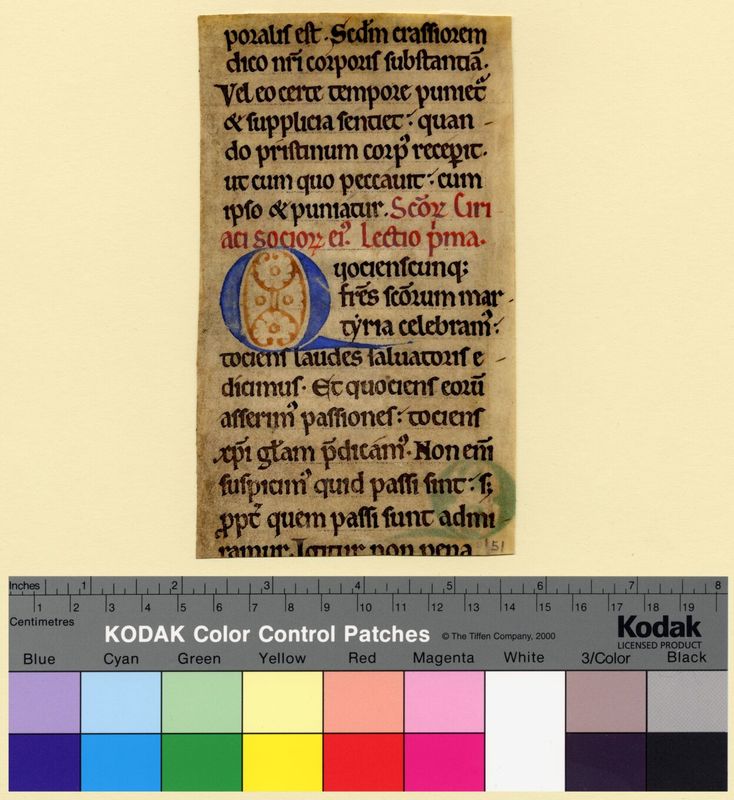 poralis est. Sedm crassiorem
dico nr̄i corporis substantiā.
Vel eo certe tempore puniet̄
& supplicia sentiet: quan
do pristinum corpꝰ receperit.
ut cum quo peccauit: cum
ipso & puniatur. Scōꝝ Ciri
aci socioꝝ eiꝰ. Lectio pͥma.
Quociensſcunq;
fr̄es scōrum mar
tẏria celebramꝰ:
tociens laudes saluatoris e
dicimus. Et quociens eorū
asserimꝰ passiones: tociens
xp̄i gl̄am p̄dicamꝰ. Non enī
suspicimꝰ quid passi sint: s;
ꝓpt̄ quem passi sunt admi
ramur. Igitur non pena
151
Inches 1 2 3 4 5 6 7 8
Centimetres 1 2 3 4 5 6 7 8 9 10 11 12 13 14 15 16 17 18 19
KODAK Color Control Patches © The Tiffen Company, 2000 Kodak
LICENSED PRODUCT
Blue Cyan Green Yellow Red Magenta White 3/Color Black